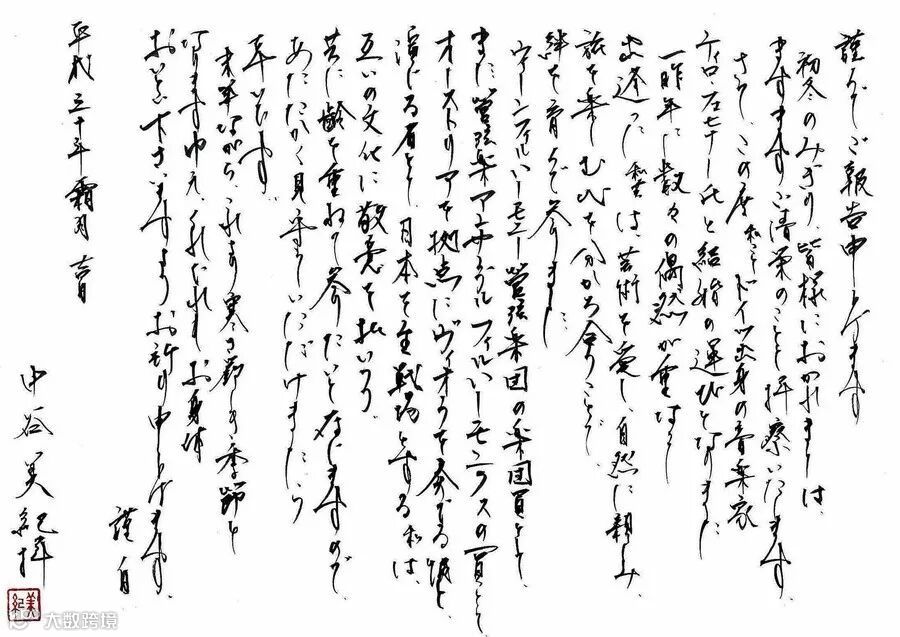 謹んでご報告申し上げます
初冬のみぎり、皆様におかれましては
ますますご清栄のことと拝察いたします。
さて、この度 私ことドイツ出身の音楽家
ティロ・フェヒナー氏と結婚の運びとなりました
一昨年に数々の偶然が重なり
出逢った私達は、芸術を愛し、自然に親しみ
旅を楽しむ心を分かち合うことで
絆を育んで参りました
ウィーンフィルハーモニー管弦楽団の楽団員として、
また管弦楽アンサンブル フィルハーモニクスの一員として
オーストリアを拠点にヴィオラを奏でる彼と
演じる者として、日本を主戦場とする私は、
互いの文化に敬意を払いつつ
共に齢を重ねて参りたいと存じますので
あたたかく見守っていただけましたら
幸いです。
末筆ながら、これより寒さ厳しき季節と
なりますゆえ、くれぐれもお身体
おいとい下さいますようお祈り申し上げます。
謹白
平成三十年霜月 吉日
中谷美紀拝
美紀
大数跨境